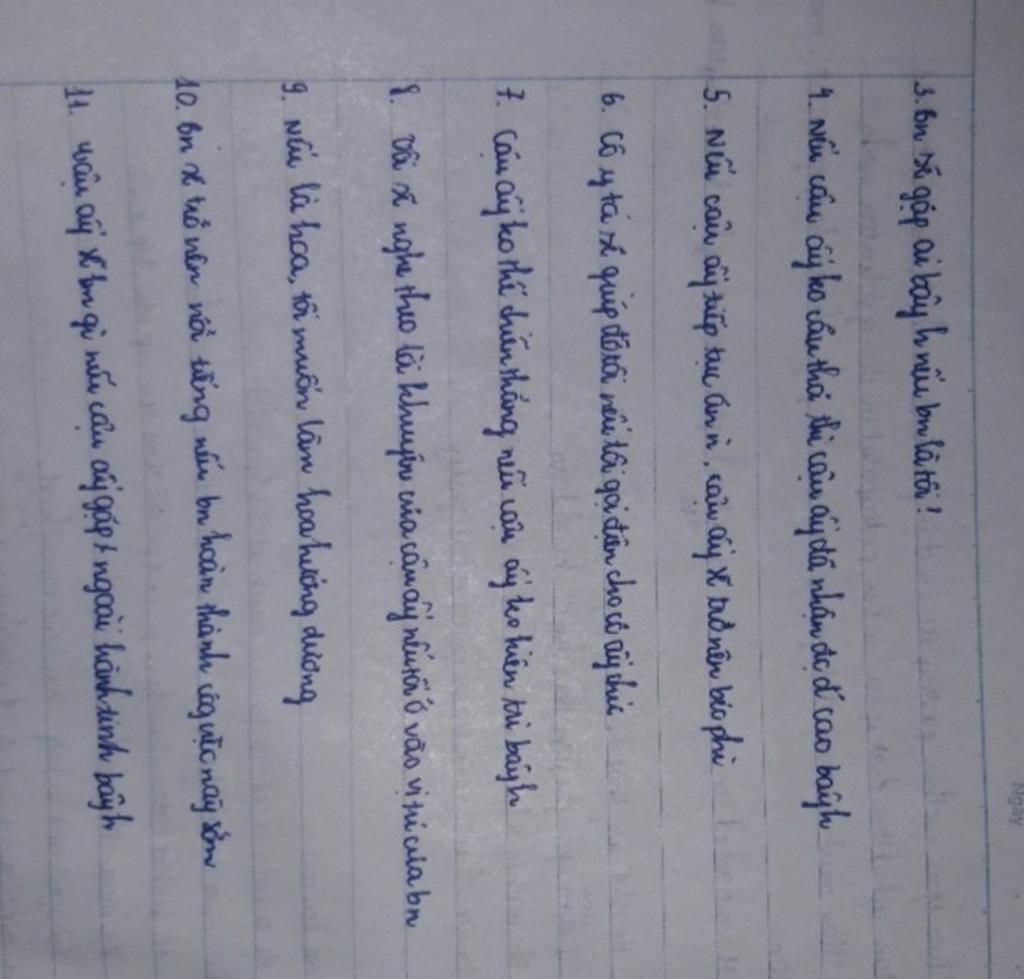 3. bn sẽ gặp ai bây h nếu bn là tôi!
4. Nếu cậu ấy ko cẩu thả thì cậu ấy đã nhận đc đ cao bây h
5. Nếu cậu ấy tiếp tục ăn n, cậu ấy sẽ trở nên béo phì
6. Cô y tá sẽ giúp đỡ tôi nếu tôi gọi điện cho cô ấy
7. Cậu ấy ko thể chiến thắng nếu cậu ấy ko kiên trì bây h
8. Tôi sẽ nghe theo lời khuyên của cậu ấy nếu tôi ở vào vị trí của bn
9. Nếu là hoa, tôi muốn làm hoa hướng dương
10. bn sẽ trở nên nổi tiếng nếu bn hoàn thành công việc này sớm
11. cậu ấy sẽ làm gì nếu cậu ấy gặp ngoài hành tinh bây h
Ngày